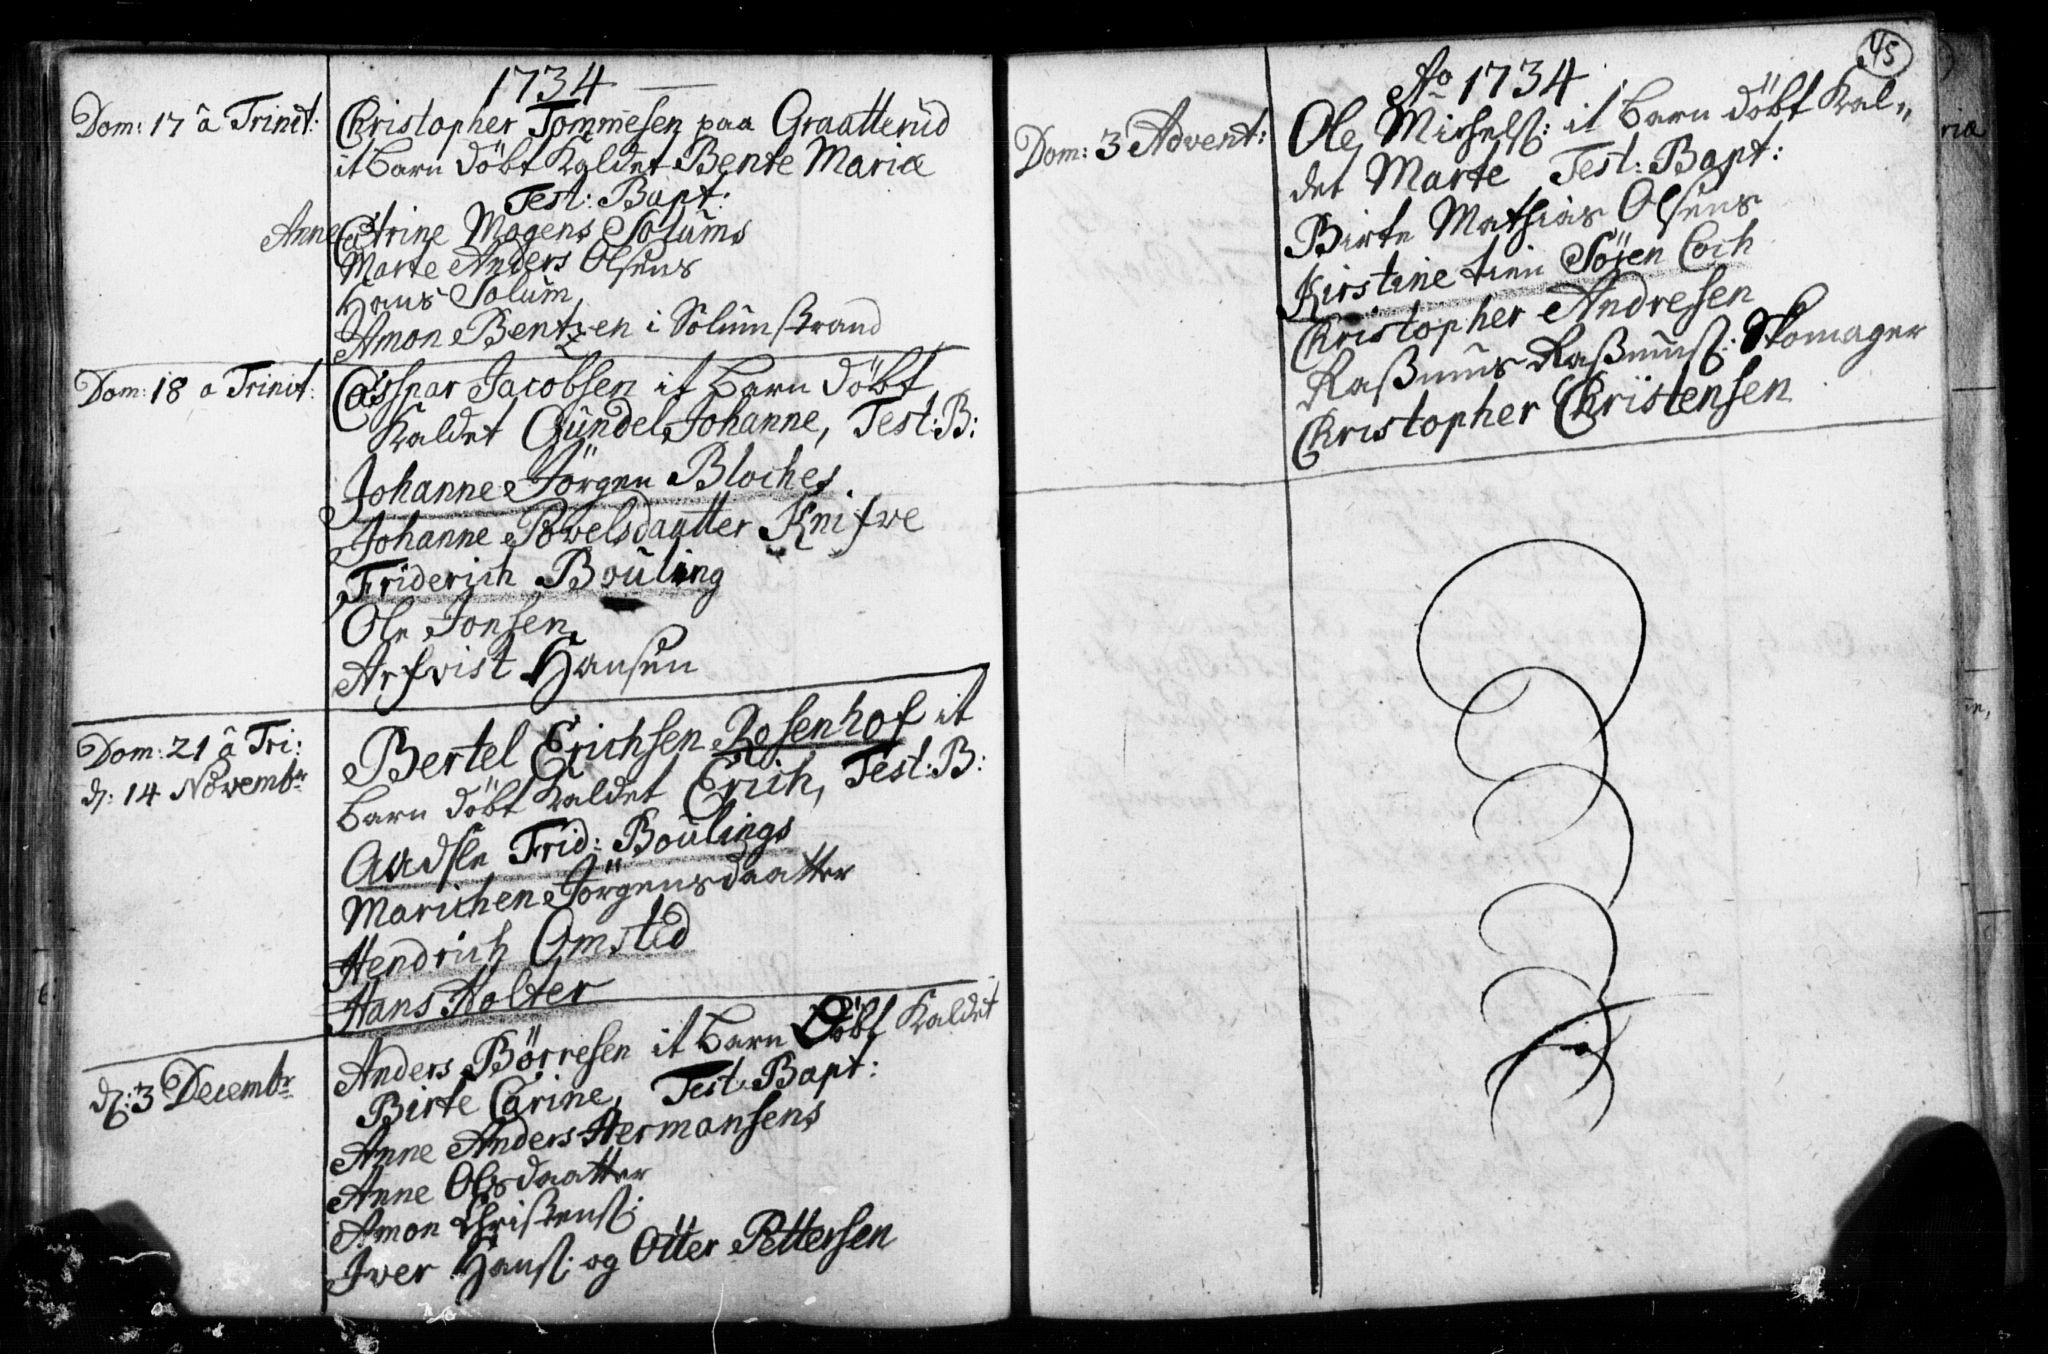 1734
Dom: 17 â Trinit:
Christopher Tommesen paa Graatterud
it Barn döbt Kaldet Bente Maria
Test: Bapt:
Anne Catrine Mogens Solums
Marte Anders Olsens
Hans Solum
Amon Bentzen i Solumstrand
Dom: 18 a Trinit:
Casspar Jacobsen it Barn döbt
Kaldet Gundel Johanne, Test: B:
Johanne Jörgen Bloches
Johanne Povelsdaatter Knifve
Friderich Bouling
Ole Jonsen
Arfvist Hansen
Dom: 21 â Tri:
d: 14 Novembr
Bertel Erichsen Rosenhof it
Barn döbt Kaldet Erich, Test: B:
Audsle Frid: Boulings
Marichen Jörgensdaatter
Hendrich Omsted
Hans Holter
d: 3 Decembr
Anders Börresen it Barn Döbt Kaldet
Birte Carine, Test: Bapt:
Anne Anders Hermansens
Anne Olsdaatter
Amon Christens:
Iver Hans: og Otter Pettersen
45
Ao 1734
Dom: 3 Advent:
Ole Michels: it Barn döbt Kal„
det Marte Test: Bapt:
Birte Mathias Olsens
Kirstine tien Söfen Coch
Christopher Andresen
Raßmus Raßmuss: Skomager
Christopher Christensen